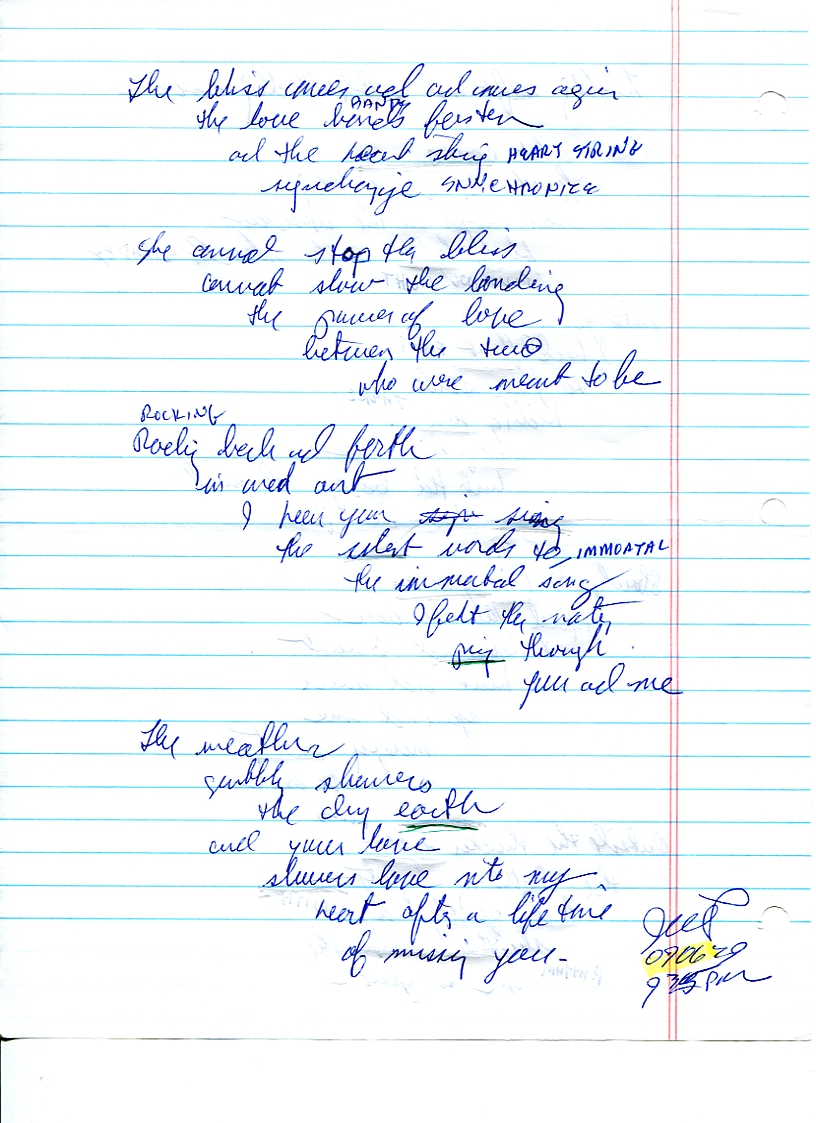 The bliss comes and comes again
BANDS
the love bands fasten
and the heart string HEART STRING
synchronize SYNCHRONIZE
She cannot stop the bliss
cannot slow the bonding
the power of love
between the two
who were meant to be
ROCKING
Rocking back and forth
in and out
I hear your sing
the silent words to IMMORTAL
the immortal song
I felt the water
through
you and me
The weather
gently showers
the dry earth
and your love
showers love into my
heart after a life time
of missing you-
PM